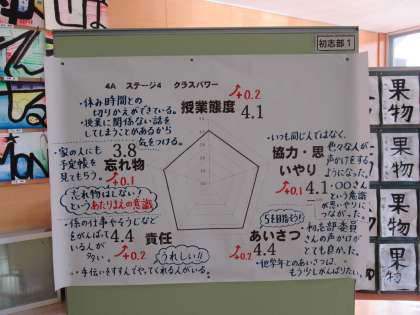 初志部1
4A ステージ4 クラスパワー
・休み時間との
切りかえができている。
・授業に関係ない話を
してしまうことがあるから
気をつける。
+0.2
授業態度 4.1
・家の人にも
予定帳を
見てもらう。
3.8
忘れ物
+0.1
忘れ物はしない!
というあたりまえの意識
・いつも同じ人ではなく、
色々な人が
声かけをする
ようになった。
協力・思
いやり
+0.1
4.1
・〇〇さん
という意識
が思いやりに
つながった。
・係の仕事やそうじなど
をがんばって
いる人が
多い。
4.4
責任
+0.2
うれしい!!
・手伝いをすすんでやってくれる人がいる。
5を目指そう!
あいさつ
4.4
+0.2
・初志部委員
さんの声かけが
とても良かった。
・他学年とのあいさつは、
もう少しがんばりたい。
果物
果物
果物
果物